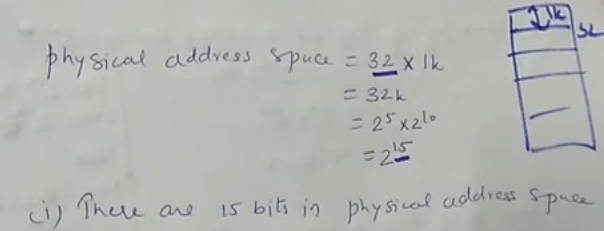 1k
32
physical address space = 32 x 1k
= 32k
= 2⁵ x 2¹⁰
= 2¹⁵
(i) There are 15 bits in physical address space